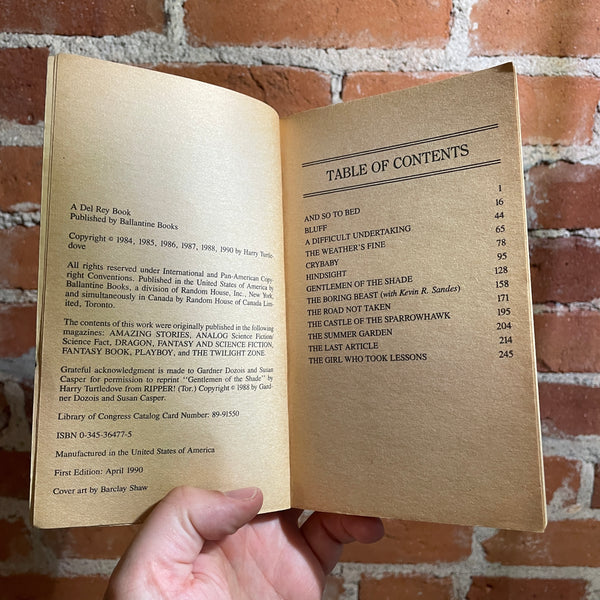 A Del Rey Book
Published by Ballantine Books
Copyright © 1984, 1985, 1986, 1987, 1988, 1990 by Harry Turtle-
dove
All rights reserved under International and Pan-American Copy-
right Conventions. Published in the United States of America by
Ballantine Books, a division of Random House, Inc., New York,
and simultaneously in Canada by Random House of Canada Lim-
ited, Toronto.
The contents of this work were originally published in the following
magazines: AMAZING STORIES, ANALOG Science Fiction/
Science Fact, DRAGON, FANTASY AND SCIENCE FICTION,
FANTASY BOOK, PLAYBOY, and THE TWILIGHT ZONE.
Grateful acknowledgment is made to Gardner Dozois and Susan
Casper for permission to reprint "Gentlemen of the Shade" by
Harry Turtledove from RIPPER! (Tor.) Copyright © 1988 by Gard-
ner Dozois and Susan Casper.
Library of Congress Catalog Card Number: 89-91550
ISBN 0-345-36477-5
Manufactured in the United States of America
First Edition: April 1990
Cover art by Barclay Shaw
TABLE OF CONTENTS
AND SO TO BED 1
BLUFF 16
A DIFFICULT UNDERTAKING 44
THE WEATHER'S FINE 65
CRYBABY 78
HINDSIGHT 95
GENTLEMEN OF THE SHADE 128
THE BORING BEAST (with Kevin R. Sandes) 158
THE ROAD NOT TAKEN 171
THE CASTLE OF THE SPARROWHAWK 195
THE SUMMER GARDEN 204
THE LAST ARTICLE 214
THE GIRL WHO TOOK LESSONS 245